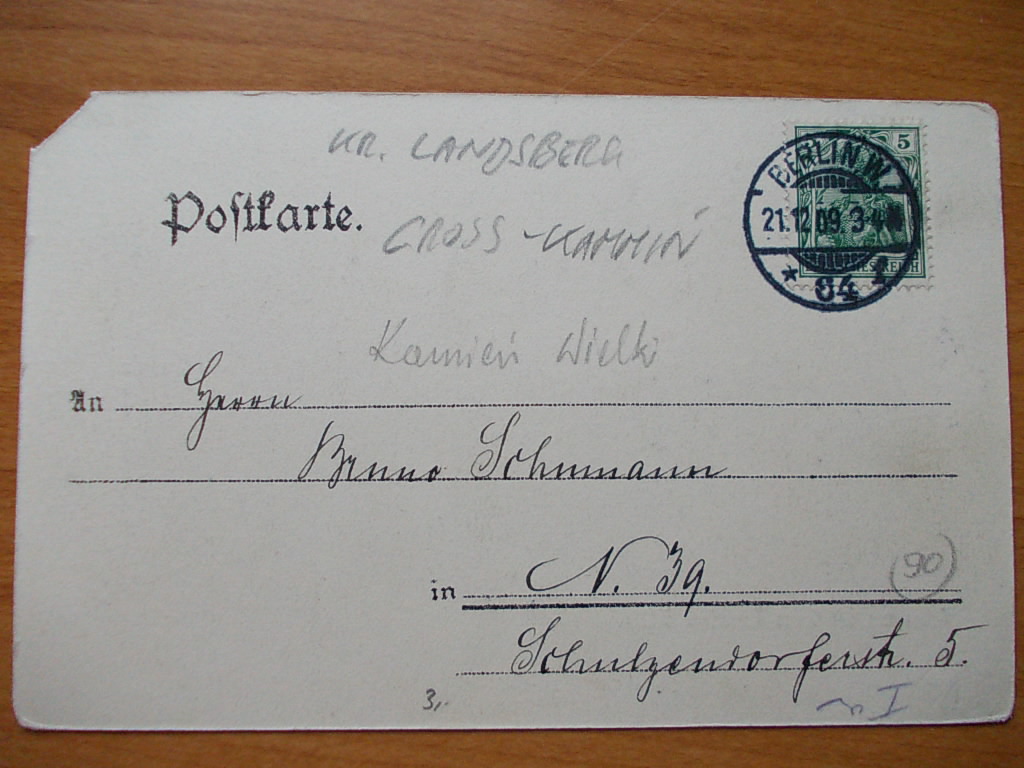 KR. LANDSBERG
5
BERLIN W.
21.12.09 3-4N
* 64 f
REICH
Postkarte.
GROSS-KAMMIN
Kamień Wielki
An Herrn
Bruno Schumann
in N. 39.
90
Schulzendorferstr. 5.
3,-
I